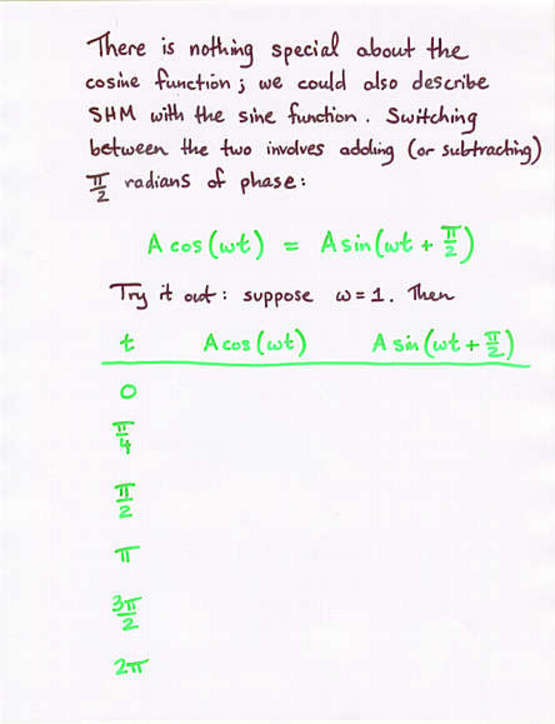 There is nothing special about the
cosine function; we could also describe
SHM with the sine function. Switching
between the two involves adding (or subtracting)
π/2 radians of phase:
A cos(ωt) = A sin(ωt + π/2)
Try it out: suppose ω=1. Then
t A cos(ωt) A sin(ωt + π/2)
0
π/4
π/2
π
3π/2
2π